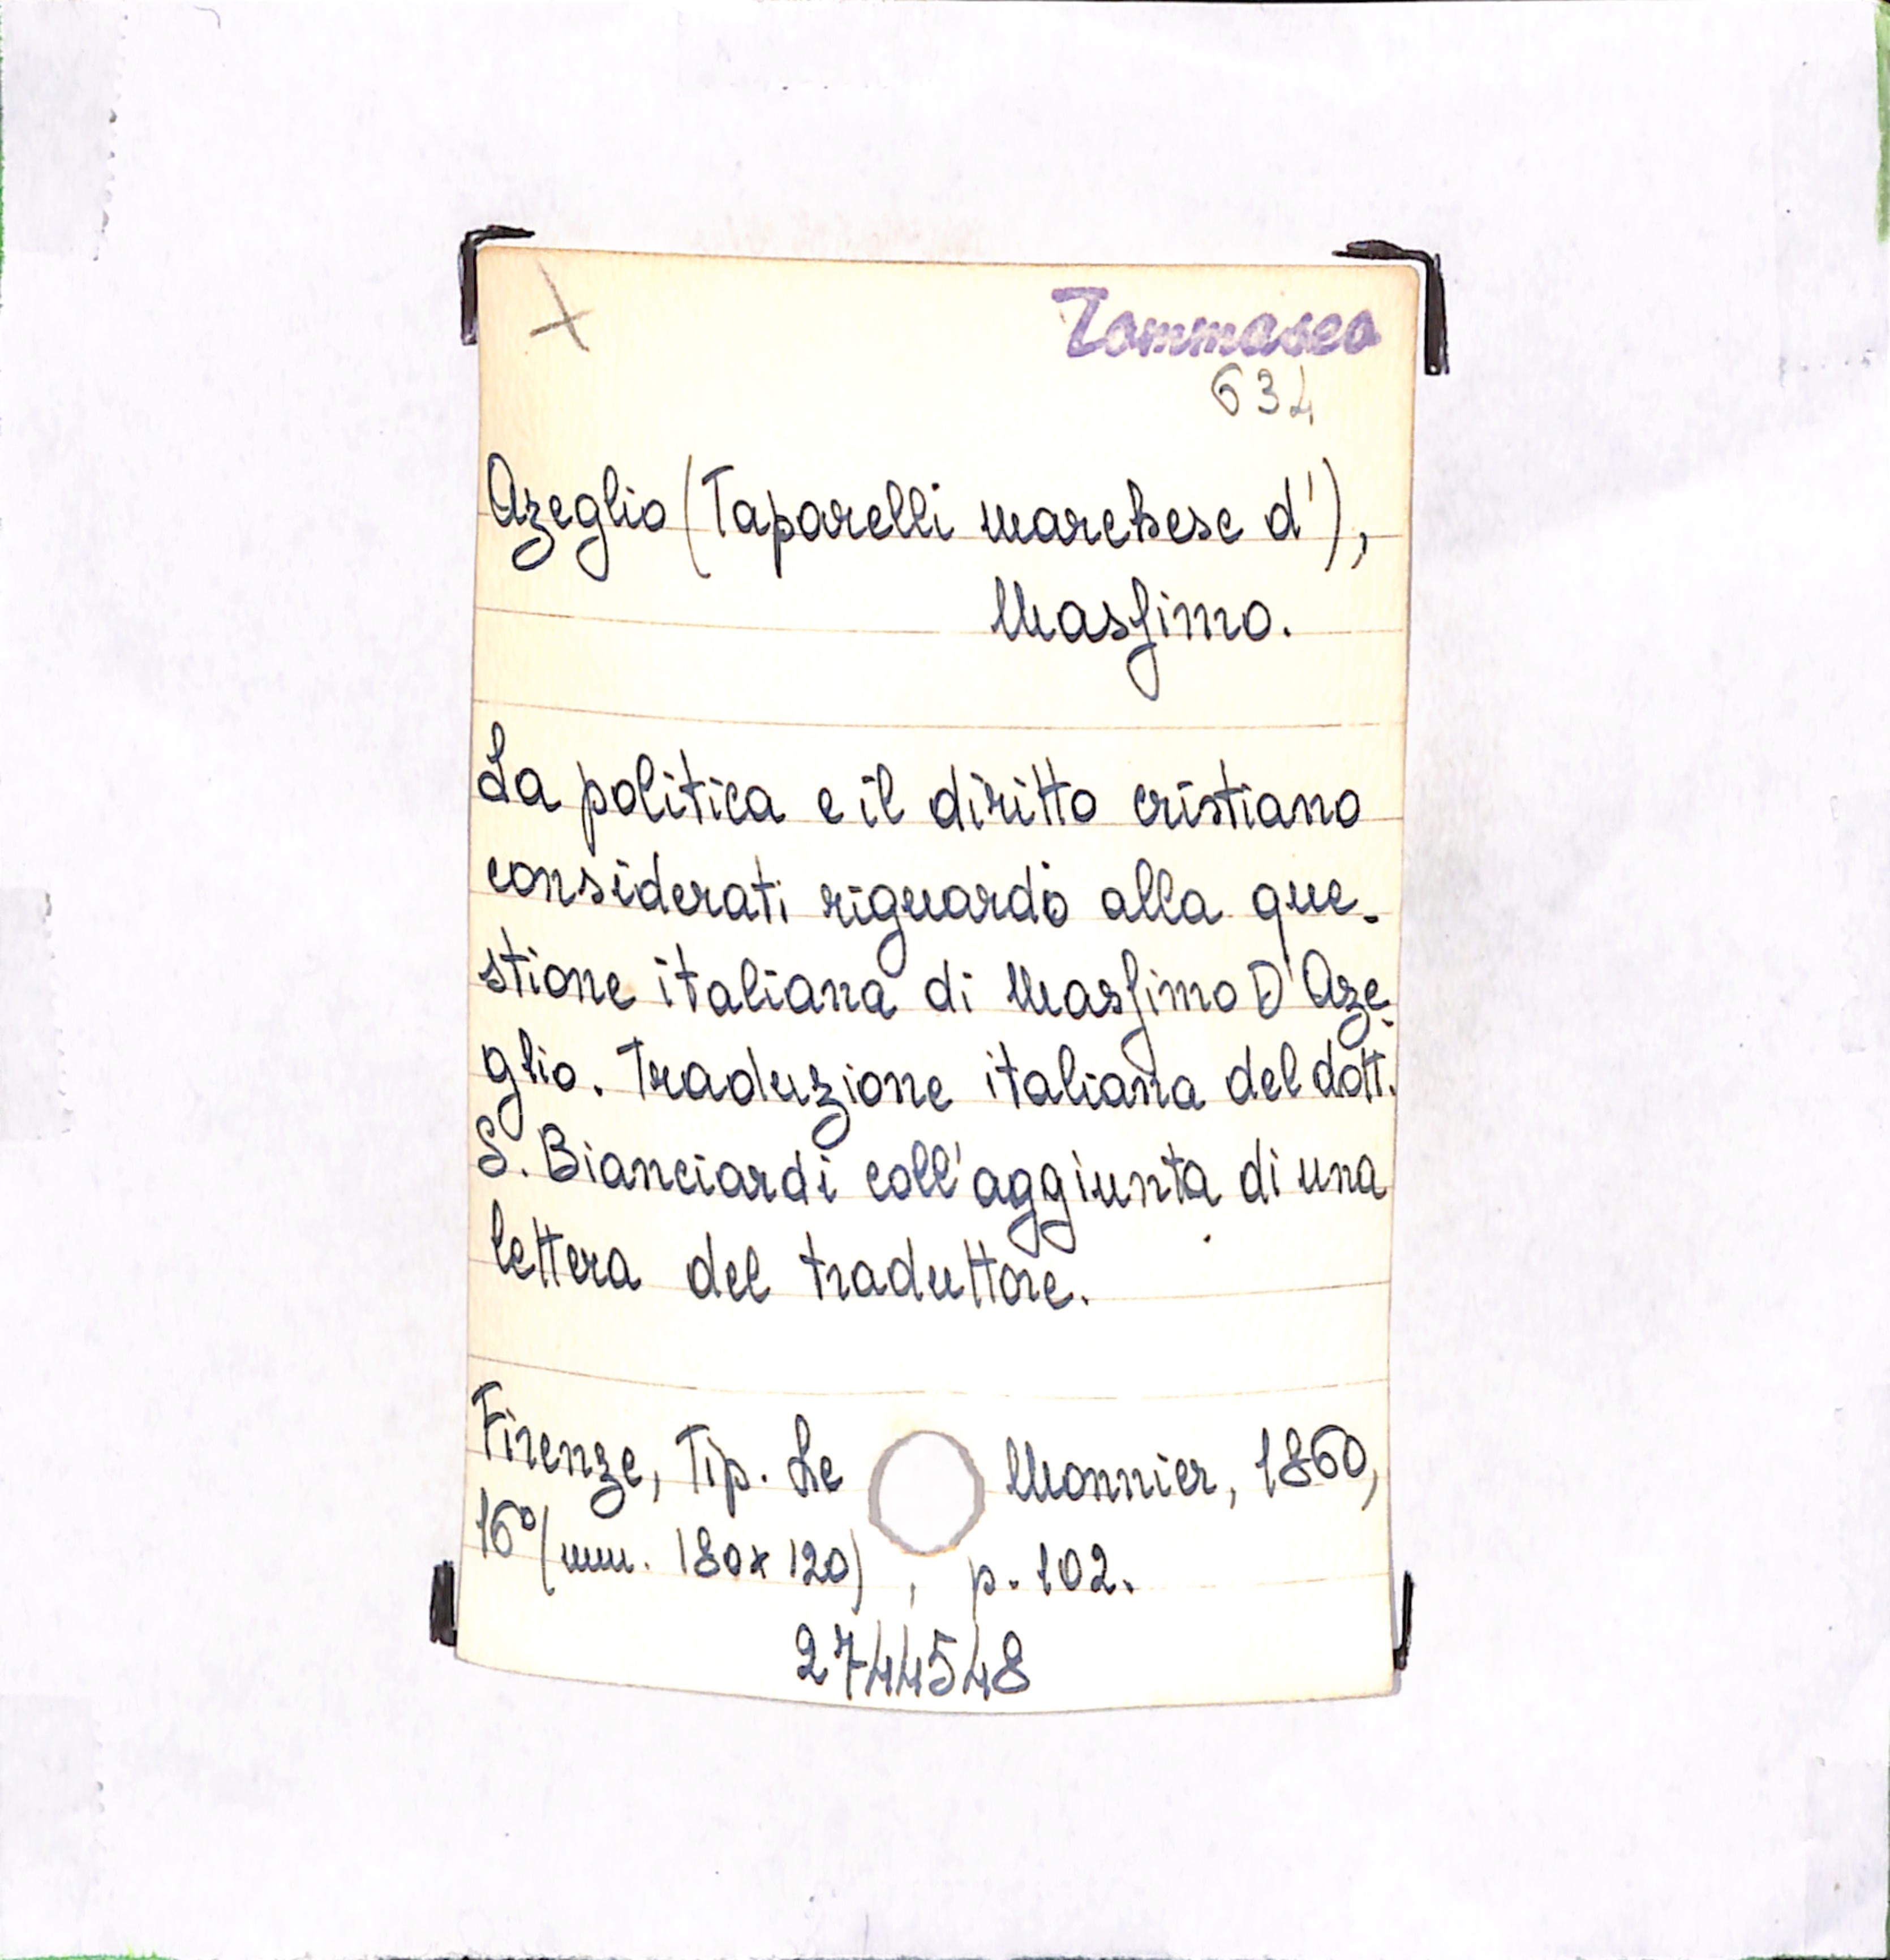 Tommaseo
634
Azeglio (Taparelli marchese d'),
Massimo.
La politica e il diritto cristiano
considerati riguardo alla que-
stione italiana di Massimo D'Aze-
glio. Traduzione italiana del dott.
S. Bianciardi coll'aggiunta di una
lettera del traduttore.
Firenze, Tip. Le Monnier, 1860,
16° (mm. 180x120), p. 102.
2744548